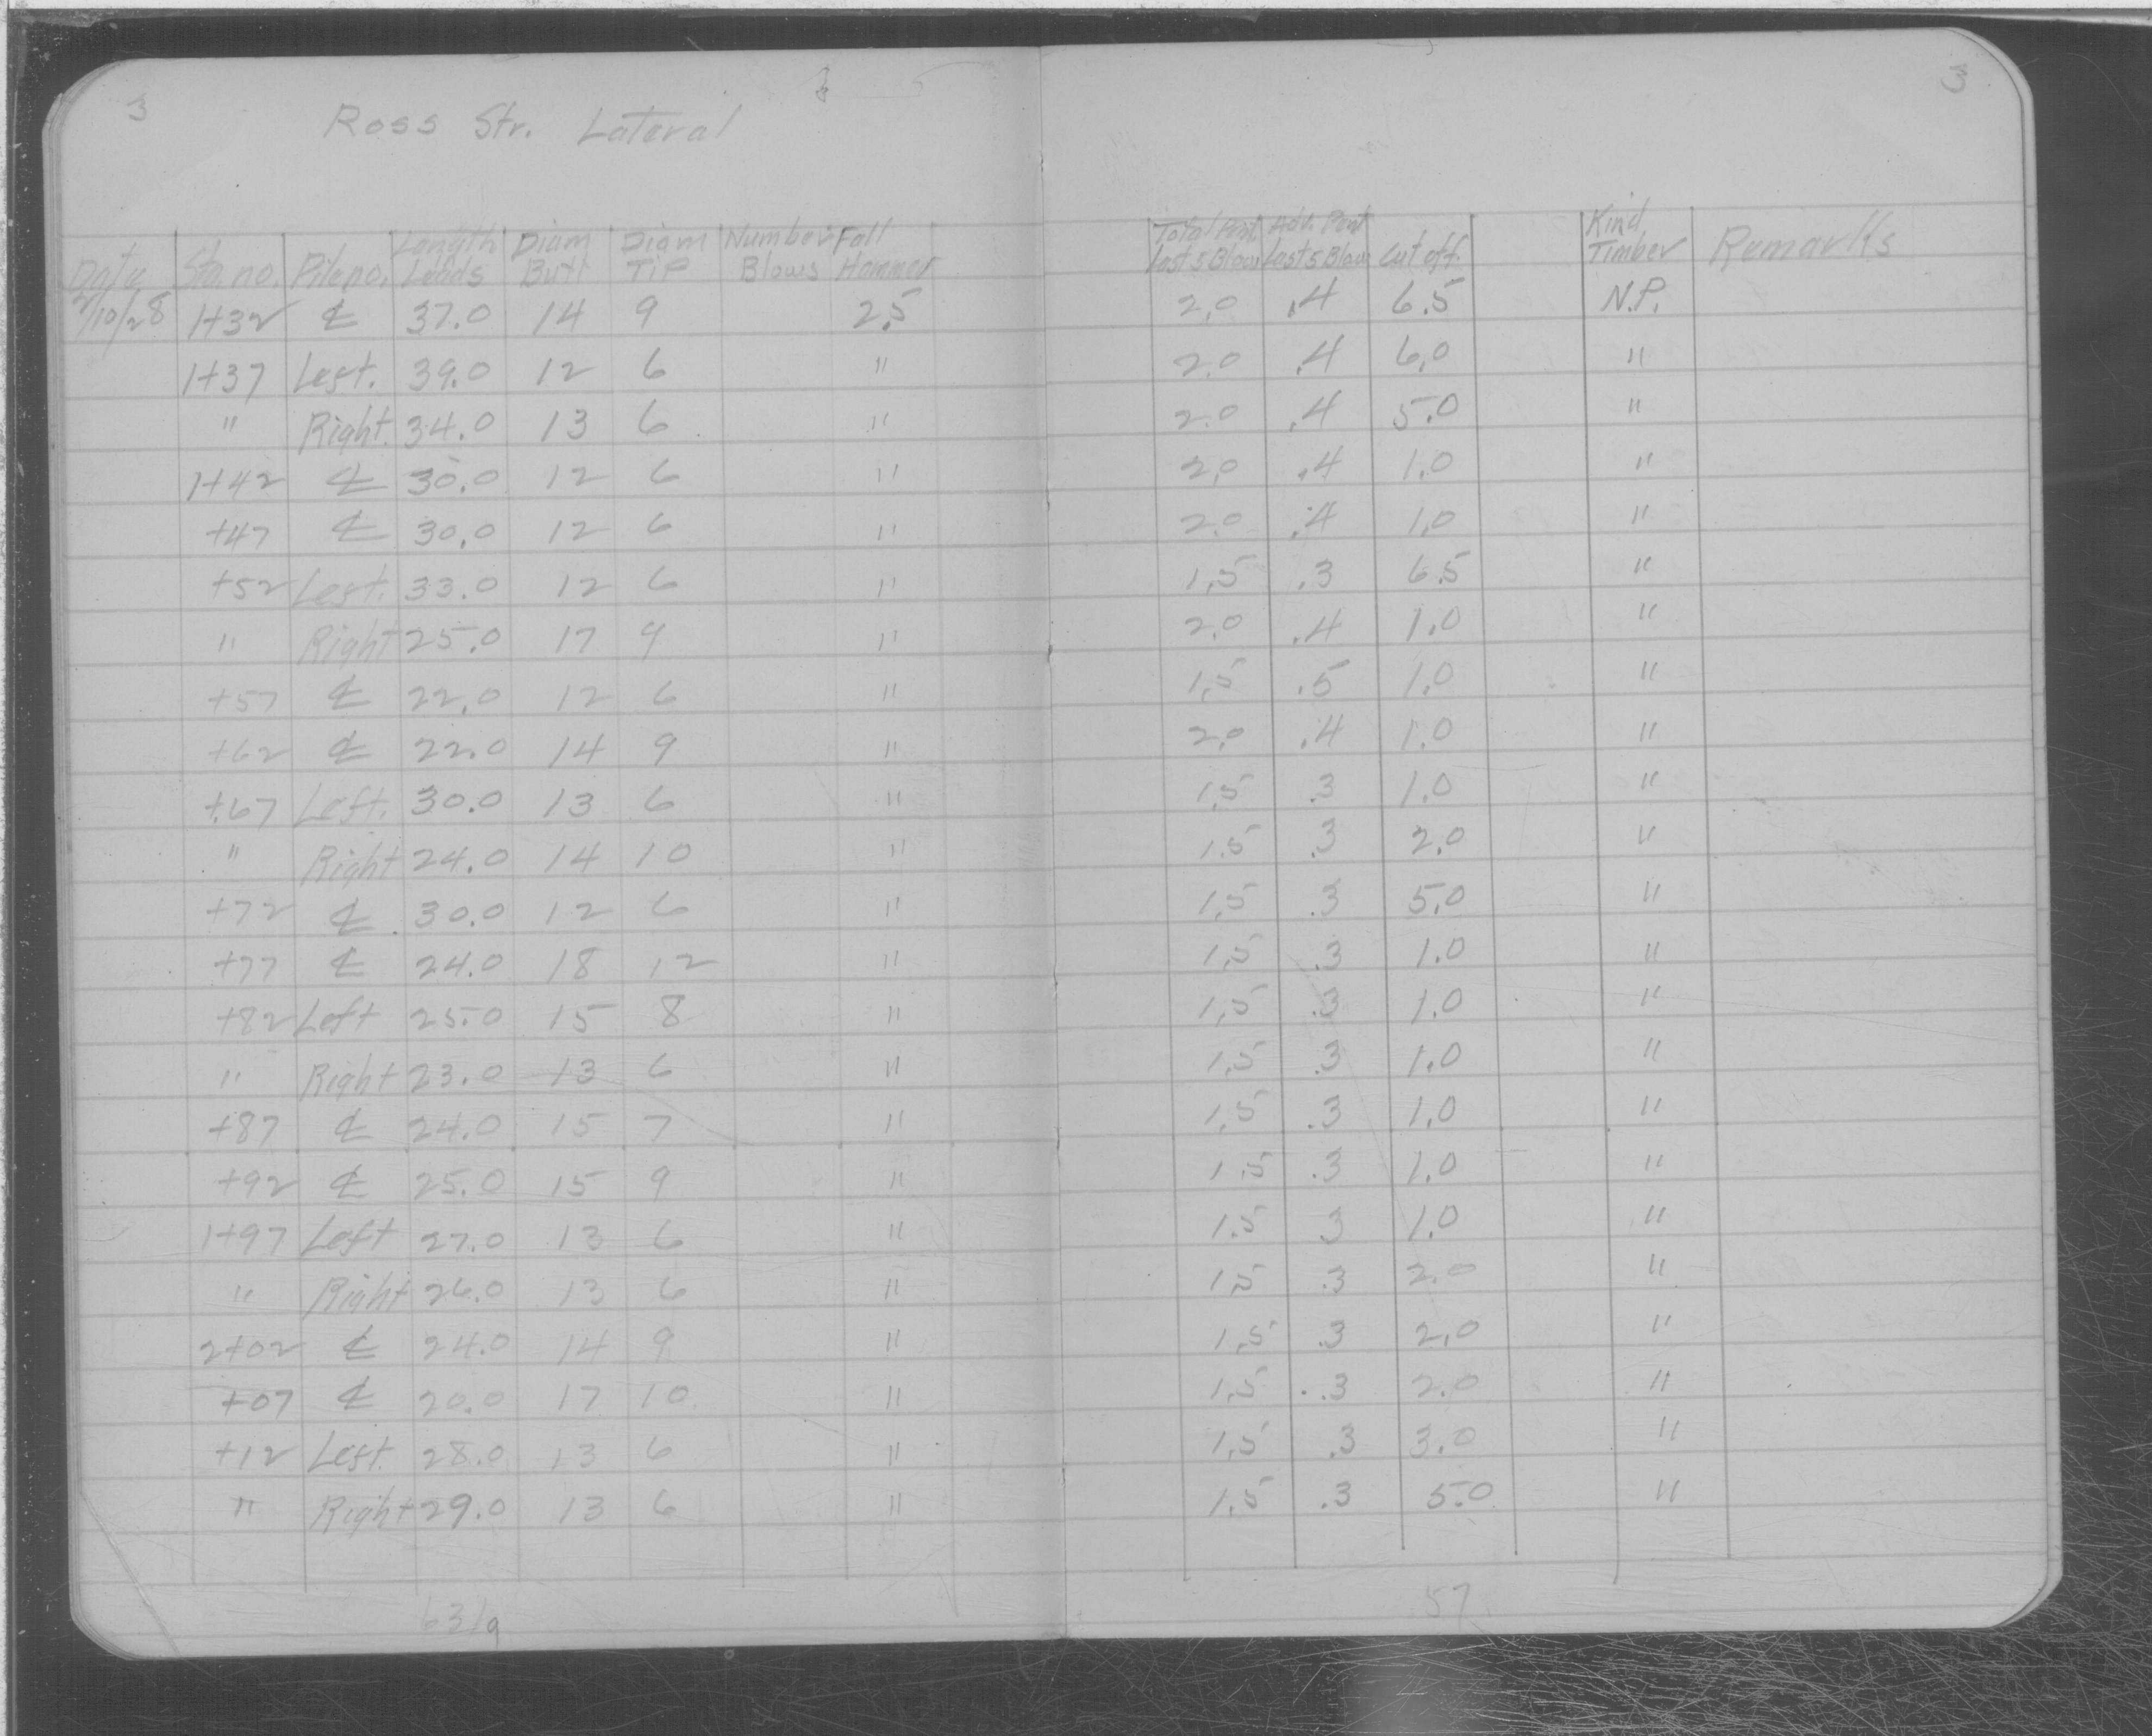 3
3
Ross Str. Lateral
Date Sta. no. Pile no. Length Leads Diam Butt Diam Tip Number Blows Fall Hammer Total Pent. Last 5 Blows Adv. Pent Last 5 Blows Cut off. Kind Timber Remarks
2/10/28 1+32 ℄ 37.0 14 9 2.5 2.0 .4 6.5 N.P.
1+37 Left. 39.0 12 6 " 2.0 .4 6.0 "
" Right. 34.0 13 6 " 2.0 .4 5.0 "
1+42 ℄ 30.0 12 6 " 2.0 .4 1.0 "
+47 ℄ 30.0 12 6 " 2.0 .4 1.0 "
+52 Left. 33.0 12 6 " 1.5 .3 6.5 "
" Right 25.0 17 9 " 2.0 .4 1.0 "
+57 ℄ 22.0 12 6 " 1.5 .5 1.0 "
+62 ℄ 22.0 14 9 " 2.0 .4 1.0 "
+67 Left. 30.0 13 6 " 1.5 .3 1.0 "
" Right 24.0 14 10 " 1.5 .3 2.0 "
+72 ℄ 30.0 12 6 " 1.5 .3 5.0 "
+77 ℄ 24.0 18 12 " 1.5 .3 1.0 "
+82 Left 25.0 15 8 " 1.5 .3 1.0 "
" Right 23.0 13 6 " 1.5 .3 1.0 "
+87 ℄ 24.0 15 7 " 1.5 .3 1.0 "
+92 ℄ 25.0 15 9 " 1.5 .3 1.0 "
1+97 Left 27.0 13 6 " 1.5 3 1.0 "
" Right 26.0 13 6 " 1.5 .3 2.0 "
2+02 ℄ 24.0 14 9 " 1.5 .3 2.0 "
+07 ℄ 20.0 17 10 " 1.5 .3 2.0 "
+12 Left. 28.0 13 6 " 1.5 .3 3.0 "
" Right 29.0 13 6 " 1.5 .3 5.0 "
57